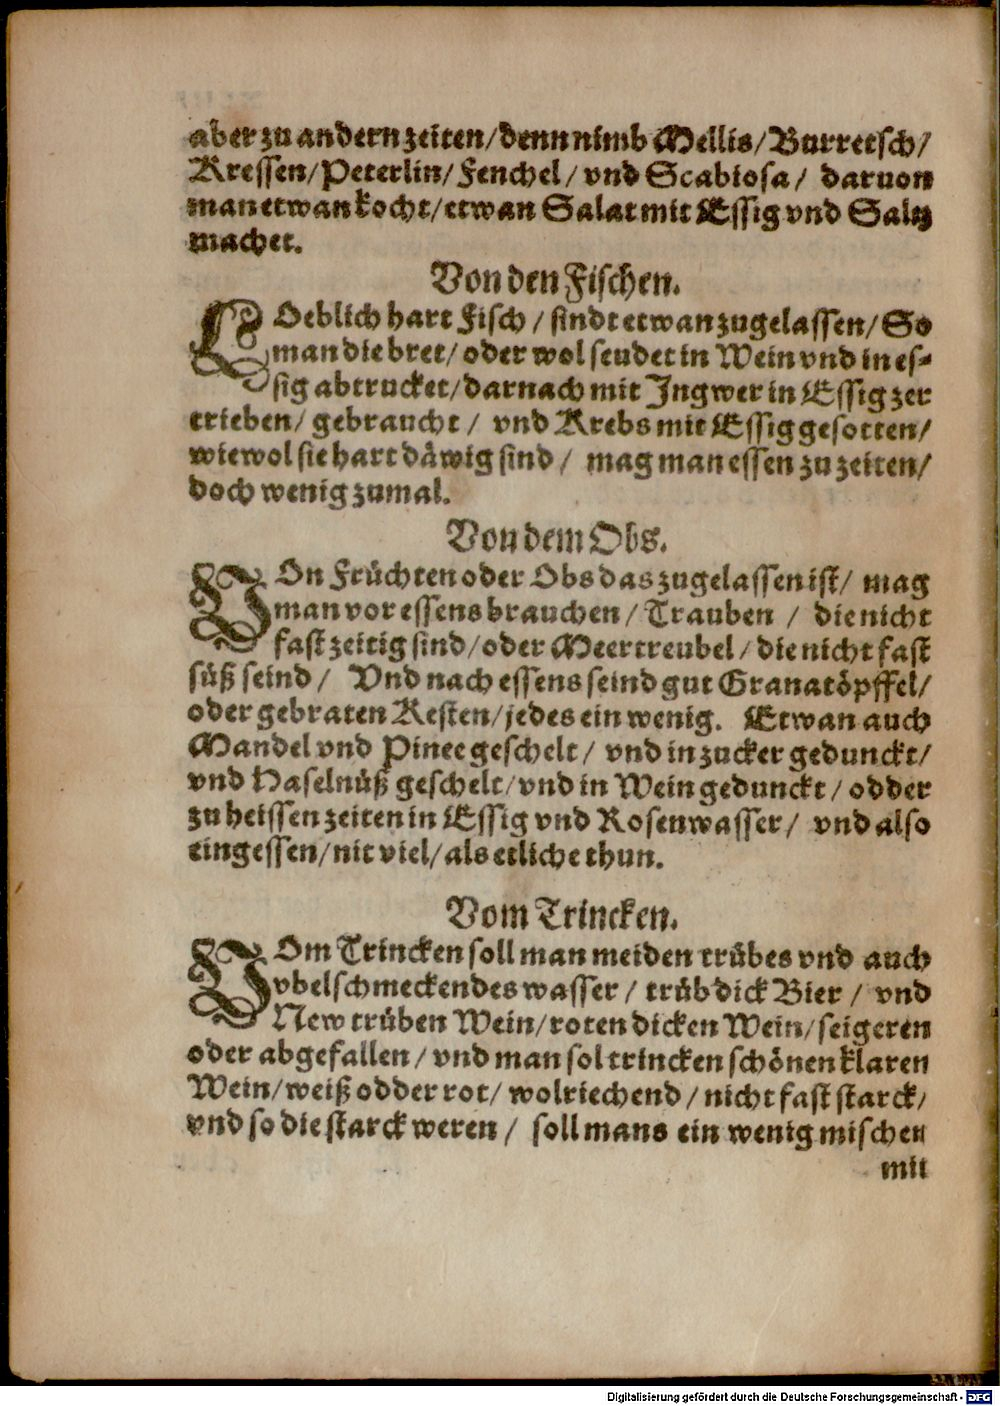 aber zu andern zeiten/denn nimb Mellis/Burretsch/
Kressen/Peterlin/Fenchel/ vnd Scabiosa/ daruon
man etwan kocht/etwan Salat mit Essig vnd Saltz
machet.
Von den Fischen.
LOeblich hart Fisch / sindt etwan zugelassen/ So
man die bret/ oder wol seudet in Wein vnd in es-
sig abtrucket/darnach mit Ingwer in Essig zer
trieben/ gebraucht / vnd Krebs mit Essig gesotten/
wiewol sie hart däwig sind / mag man essen zu zeiten/
doch wenig zumal.
Von dem Obs.
VOn Früchten oder Obs das zugelassen ist/ mag
man vor essens brauchen/ Trauben / die nicht
fast zeitig sind/oder Meertreubel/die nicht fast
süß seind / Vnd nach essens seind gut Granatöpffel/
oder gebraten Kesten/jedes ein wenig. Etwan auch
Mandel vnd Pinee geschelt/ vnd in zucker gedunckt/
vnd Haselnüß geschelt/vnd in Wein gedunckt / odder
zu heissen zeiten in Essig vnd Rosenwasser/ vnd also
eingessen/nit viel/als etliche thun.
Vom Trincken.
VOm Trincken soll man meiden trübes vnd auch
vbelschmeckendes wasser / trüb dick Bier / vnd
New trüben Wein/roten dicken Wein/seigeren
oder abgefallen/ vnd man sol trincken schönen klaren
Wein/weiß odder rot/ wolriechend / nicht fast starck/
vnd so die starck weren / soll mans ein wenig mischen
mit
Digitalisierung gefördert durch die Deutsche Forschungsgemeinschaft - DFG